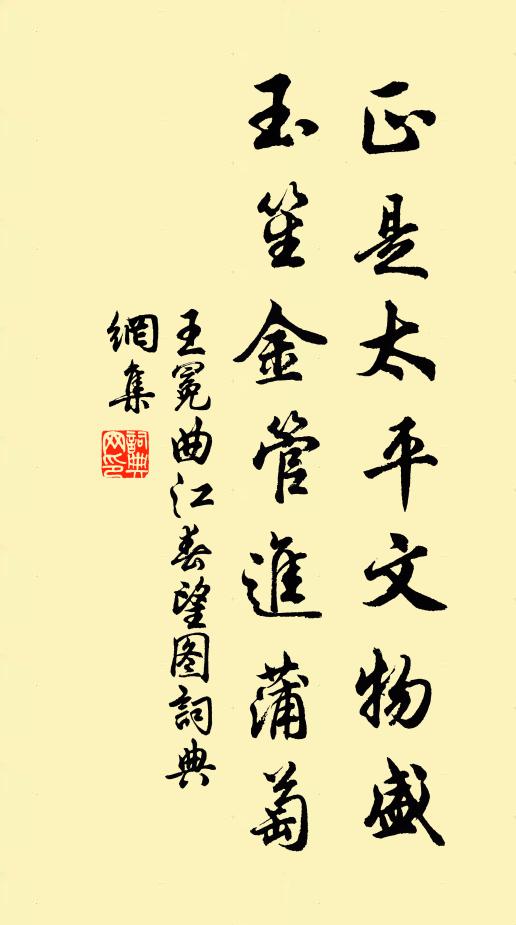 正是太平文物盛
玉笙金管進蒲萄
王冕曲江春望图詞典
網集
詞典
网印